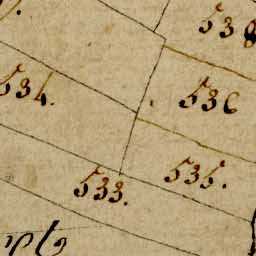 538
534.
536
535.
533.